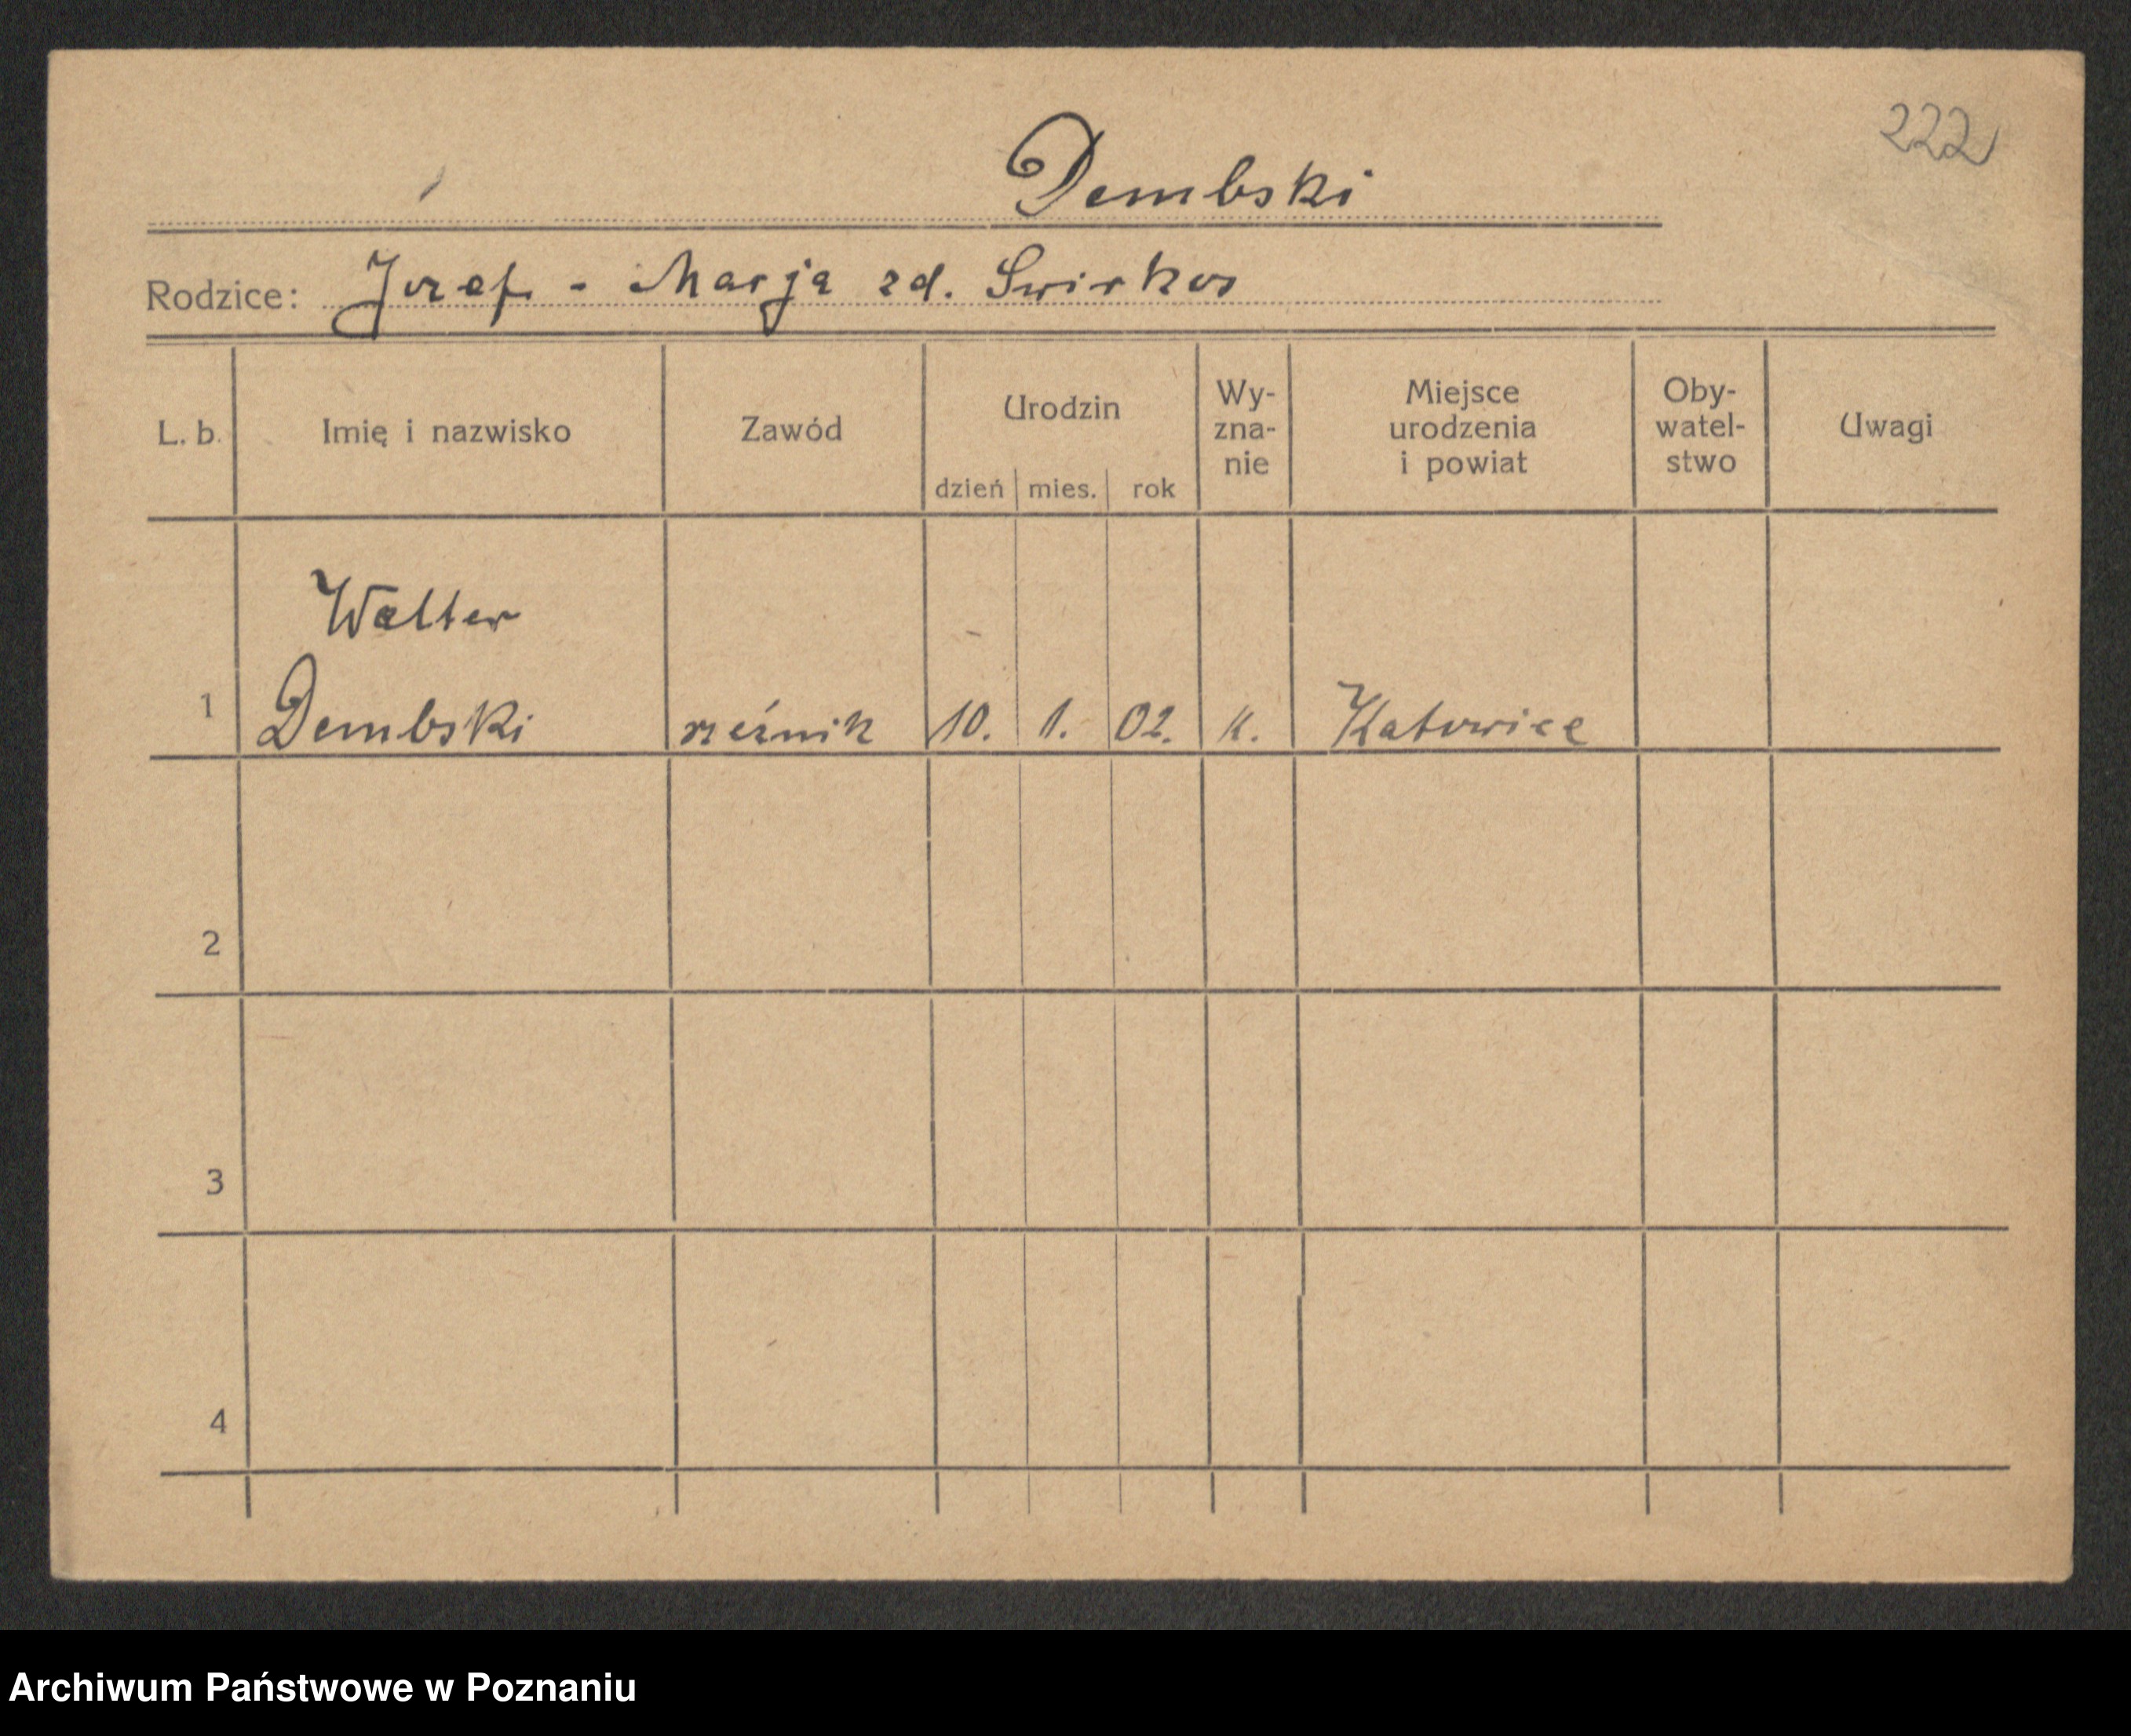 222
Dembski
Rodzice: Jozef - Marja zd. Swirkos
L. b. Imię i nazwisko Zawód Urodzin dzień mies. rok Wy-zna-nie Miejsce urodzenia i powiat Oby-watel-stwo Uwagi
Walter
1 Dembski rzeźnik 10. 1. 02. k. Katowice
2
3
4
Archiwum Państwowe w Poznaniu